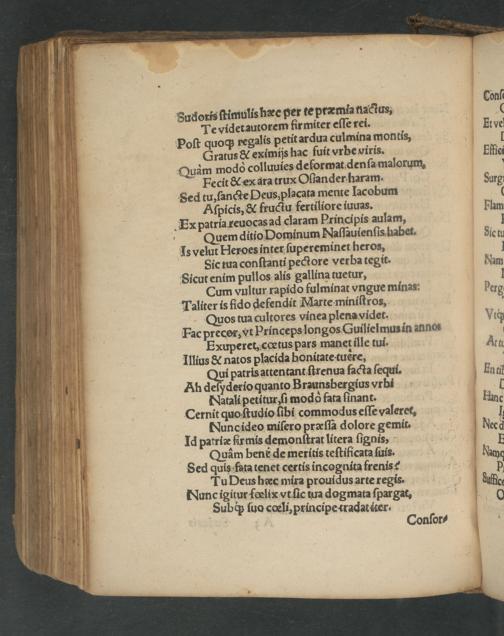 Sudoris stimulis hæc per te præmia nactus,
Te videt autorem firmiter esse rei.
Post quoq; regalis petit ardua culmina montis,
Gratus & eximijs hac fuit vrbe viris.
Quàm modò colluuies deformat densa malorum,
Fecit & ex ara trux Osiander haram.
Sed tu, sancte Deus, placata mente Iacobum
Aspicis, & fructu fertiliore iuuas.
Ex patria reuocas ad claram Principis aulam,
Quem ditio Dominum Nassauiensis habet.
Is velut Heroes inter supereminet heros,
Sic tua constanti pectore verba tegit.
Sicut enim pullos alis gallina tuetur,
Cum vultur rapido fulminat vngue minas:
Taliter is fido defendit Marte ministros,
Quos tua cultores vinea plena videt.
Fac precor, vt Princeps longos Guilielmus in annos
Exuperet, cœtus pars manet ille tui.
Illius & natos placida bonitate tuere,
Qui patris attentant strenua facta sequi.
Ah desyderio quanto Braunsbergius vrbi
Natali petitur, si modò fata sinant.
Cernit quo studio sibi commodus esse valeret,
Nunc ideo misero præssa dolore gemit.
Id patriæ firmis demonstrat litera signis,
Quàm benè de meritis testificata suis.
Sed quis fata tenet certis incognita frenis?
Tu Deus hæc mira prouidus arte regis.
Nunc igitur fœlix vt sic tua dogmata spargat,
Subq; suo cœli, principe tradat iter.
Consor-
Et vel
Effici
Surg
Flam
Sic tu
Nam
Perg
Vtq;
At tu
En tib
Hanc
Nec d
Namq
Suffice